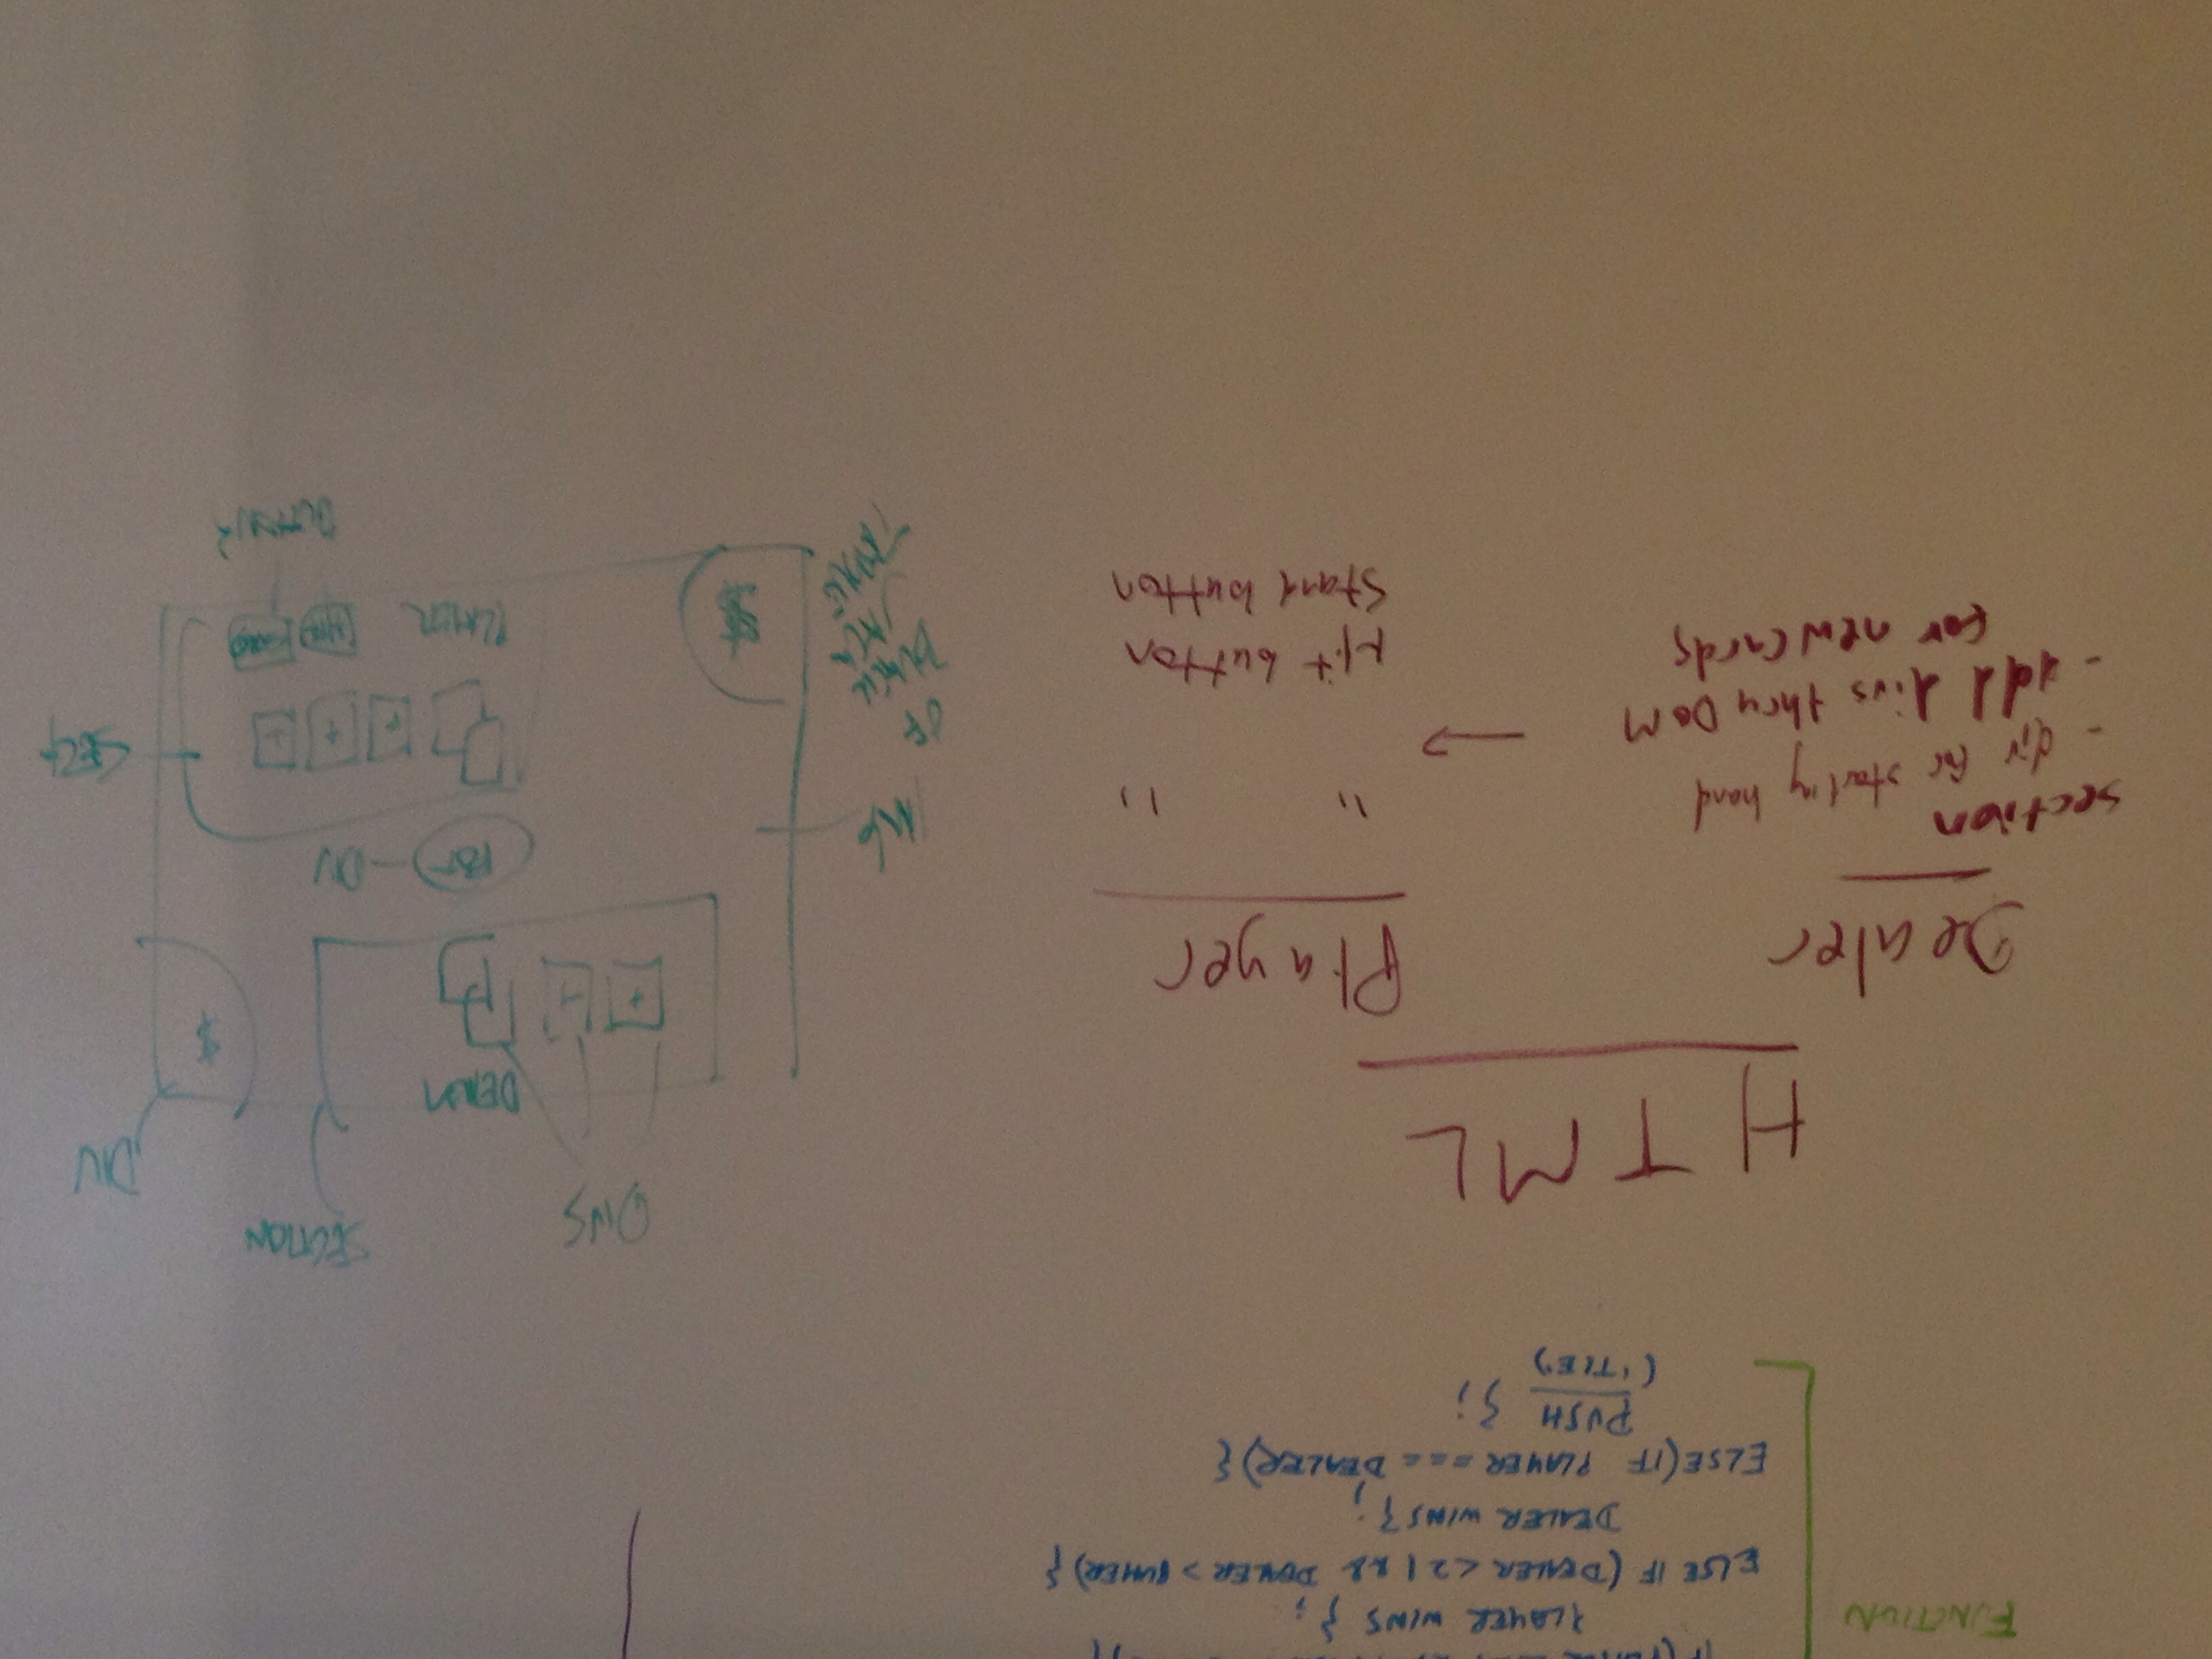 FUNCTION
IF(PLAYER
PLAYER WINS };
ELSE IF (DEALER <21 && DEALER > PLAYER) {
DEALER WINS};
ELSE(IF PLAYER === DEALER){
PUSH };
('TIE')
HTML
Dealer
section
- div for starting hand
- add divs thru DOM
for new cards
Player
" "
Hit button
Stand button
DIVS
SECTION
DIV
DEALER
$
POT - DIV
IMG
OF
BLACK
JACK
TABLE
SECT
$
PLAYER HIT STAND
BUTTONS